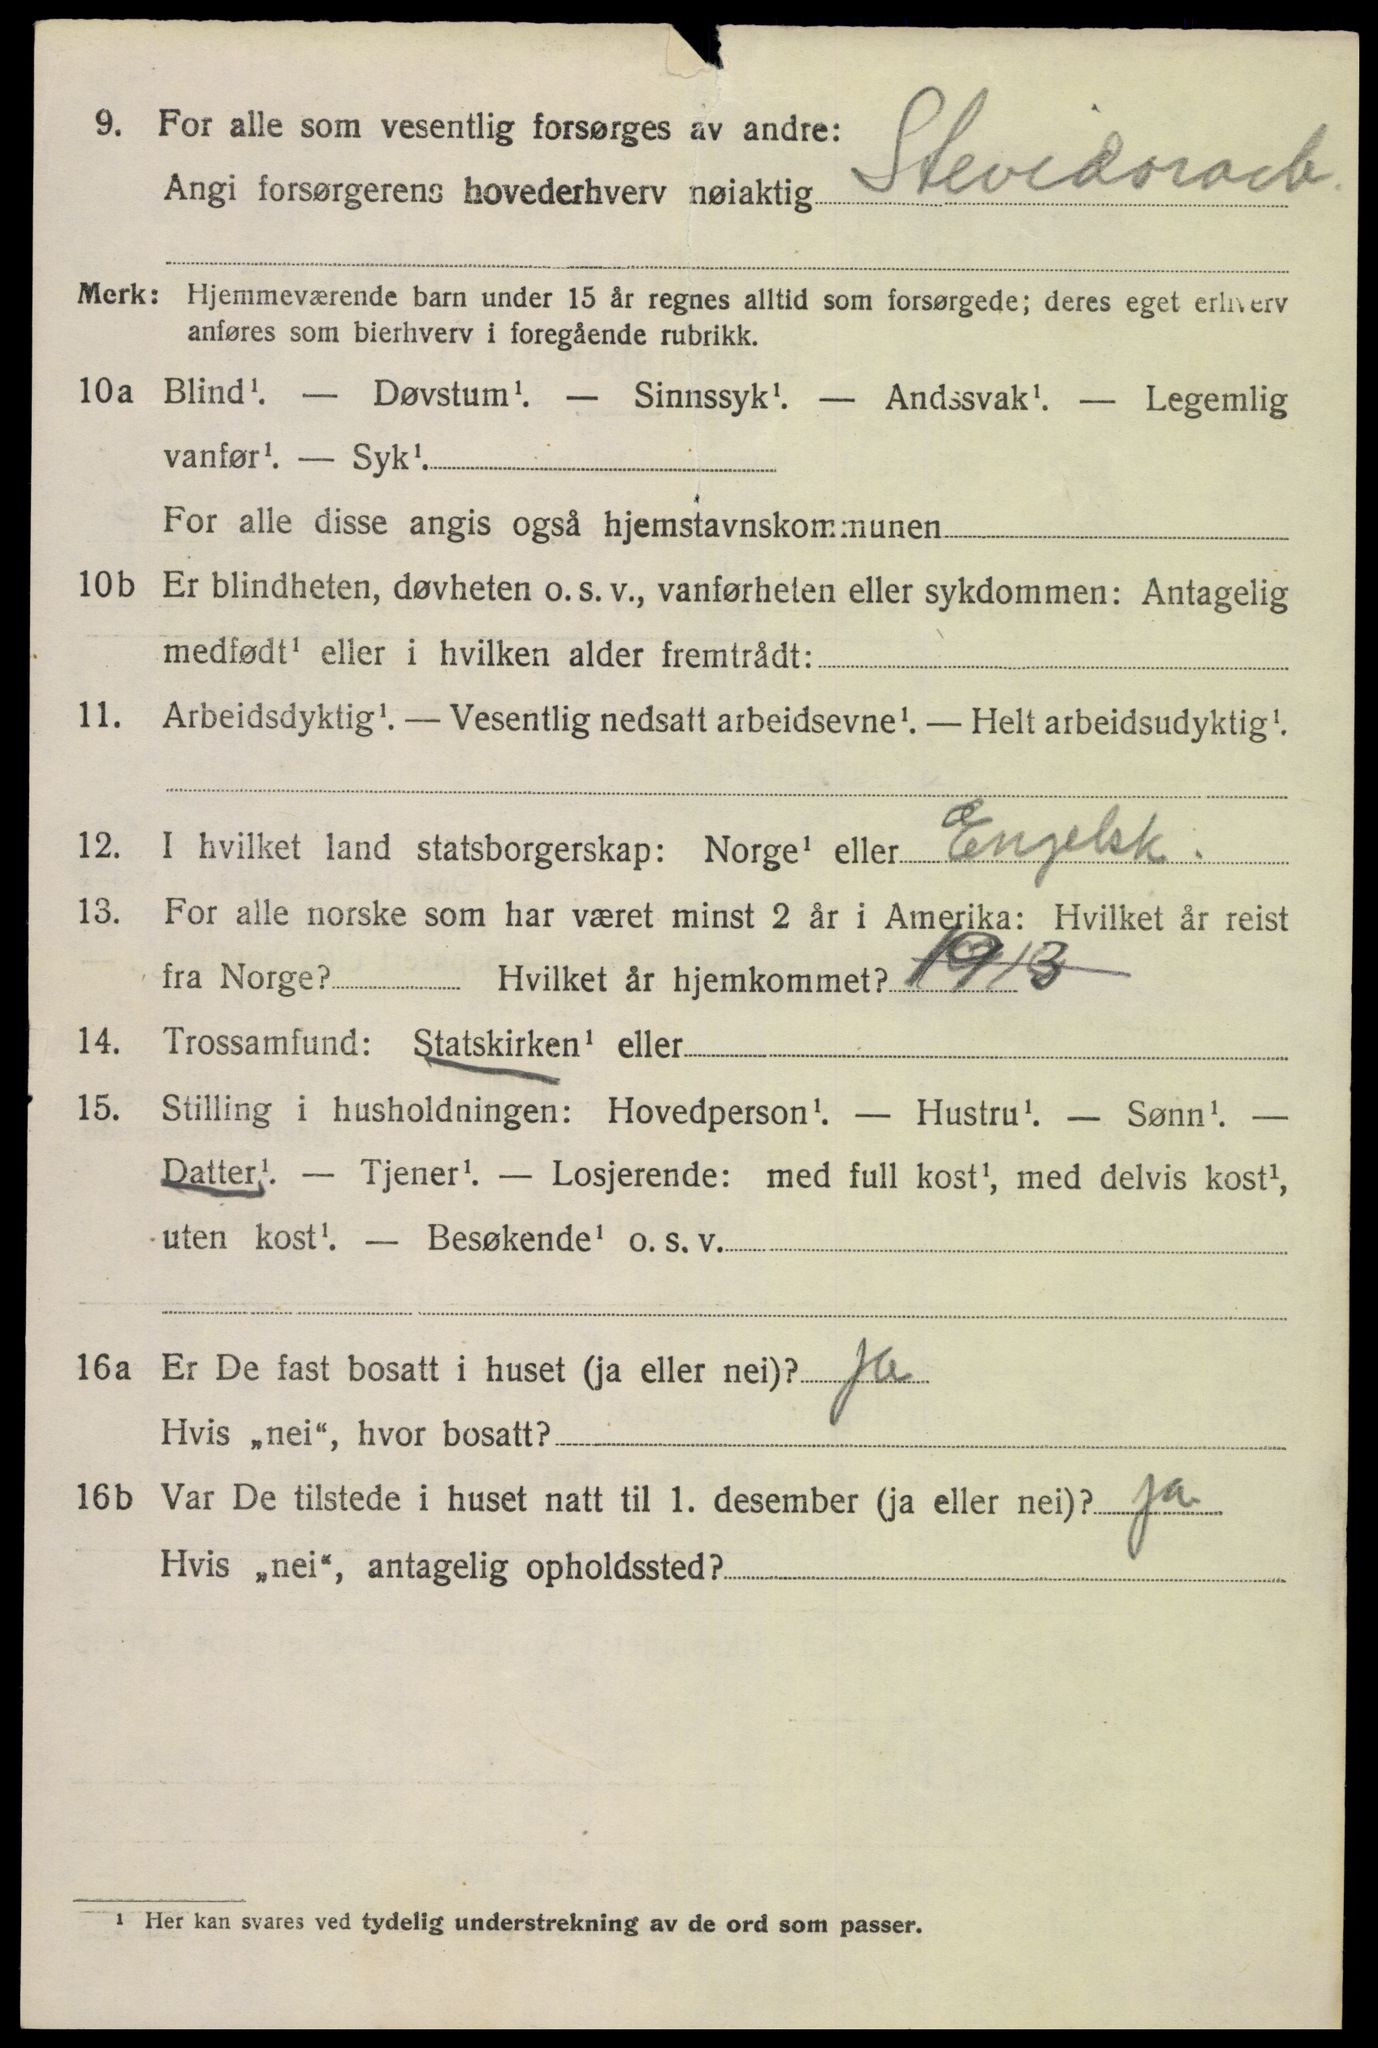 9. For alle som vesentlig forsørges av andre:
Angi forsørgerens hovederhverv nøiaktig Stevidorarb.
Merk: Hjemmeværende barn under 15 år regnes alltid som forsørgede; deres eget erhverv
anføres som bierhverv i foregående rubrikk.
10a Blind¹. — Døvstum¹. — Sinnssyk¹. — Andssvak¹. — Legemlig
vanfør¹. — Syk¹.
For alle disse angis også hjemstavnskommunen
10b Er blindheten, døvheten o. s. v., vanførheten eller sykdommen: Antagelig
medfødt¹ eller i hvilken alder fremtrådt:
11. Arbeidsdyktig¹. — Vesentlig nedsatt arbeidsevne¹. — Helt arbeidsudyktig¹.
12. I hvilket land statsborgerskap: Norge¹ eller Engelsk.
13. For alle norske som har været minst 2 år i Amerika: Hvilket år reist
fra Norge? Hvilket år hjemkommet? 1913
14. Trossamfund: Statskirken¹ eller
15. Stilling i husholdningen: Hovedperson¹. — Hustru¹. — Sønn¹. —
Datter¹. — Tjener¹. — Losjerende: med full kost¹, med delvis kost¹,
uten kost¹. — Besøkende¹ o. s. v.
16a Er De fast bosatt i huset (ja eller nei)? ja
Hvis „nei“, hvor bosatt?
16b Var De tilstede i huset natt til 1. desember (ja eller nei)? ja
Hvis „nei“, antagelig opholdssted?
¹ Her kan svares ved tydelig understrekning av de ord som passer.